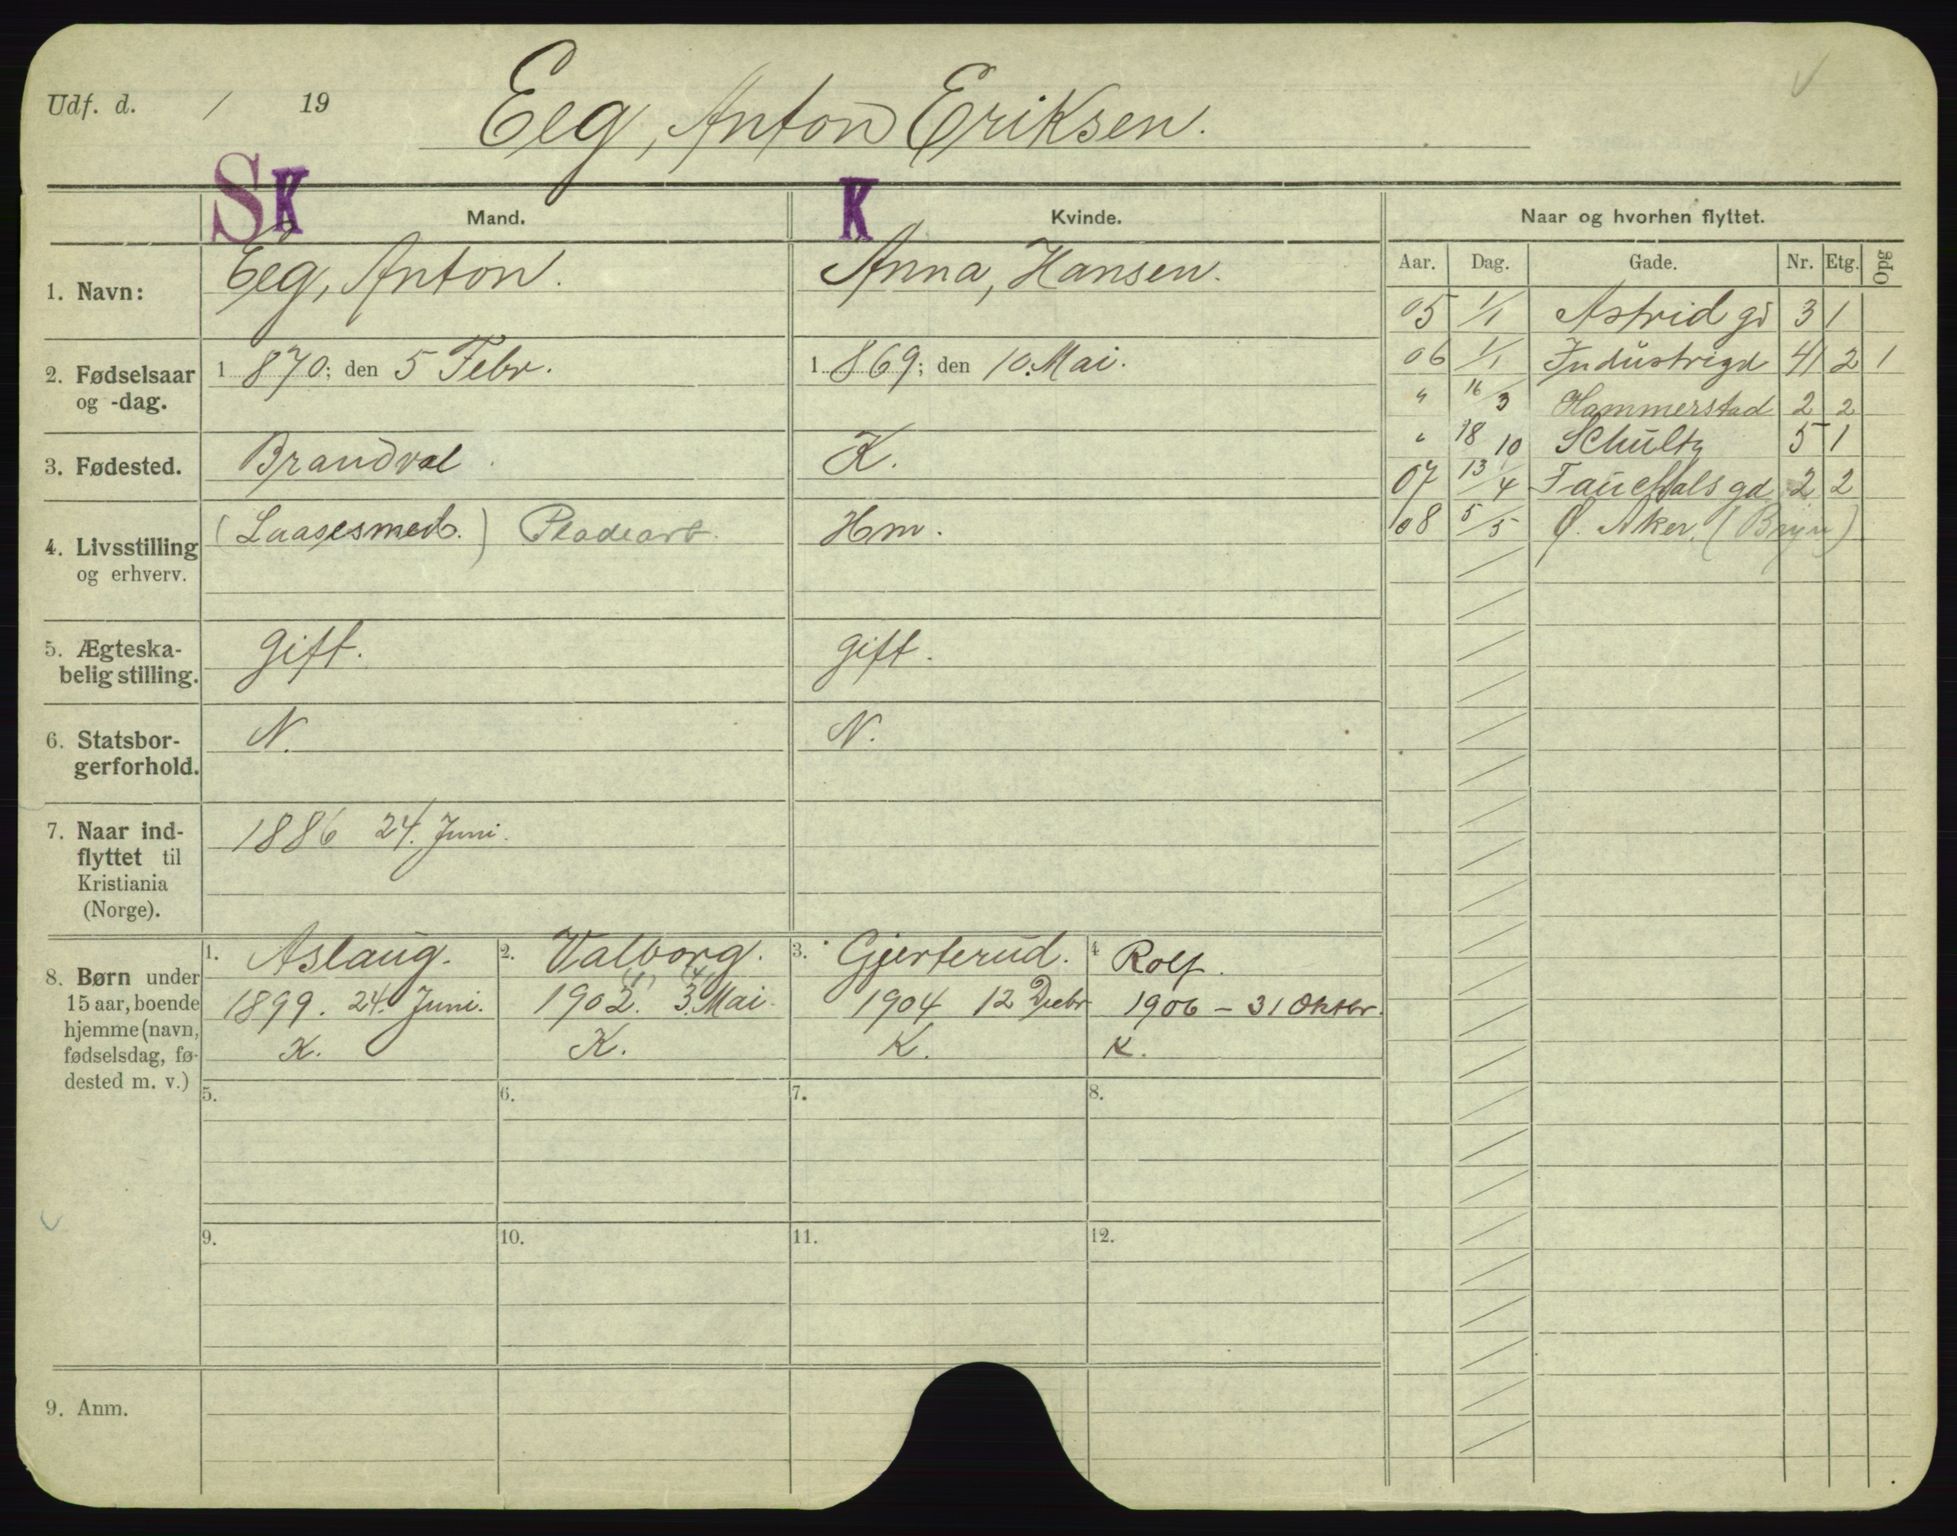 Udf. d. / 19 Eeg, Anton Eriksen.
S K K
Mand. Kvinde. Naar og hvorhen flyttet.
1. Navn: Eeg, Anton. Anna, Hansen.
2. Fødselsaar og -dag. 1 870; den 5 Febr. 1 869; den 10. Mai.
3. Fødested. Brandval K.
4. Livsstilling og erhverv. (Laasesmed.) Pladearb. Hm.
5. Ægteska-
belig stilling. gift. gift.
6. Statsbor-
gerforhold. N. N.
7. Naar ind-
flyttet til
Kristiania
(Norge). 1886 24. Juni.
8. Børn under
15 aar, boende
hjemme (navn,
fødselsdag, fø-
dested m. v.)
1. Aslaug.
1899. 24. Juni.
K.
2. Valborg.
1902. 3. Mai.
K.
3. Gjerterud.
1904 12 Decbr
K.
4 Rolf.
1906 – 31 Oktbr.
K.
5. 6. 7. 8.
9. 10. 11. 12.
9. Anm.
Aar. Dag. Gade. Nr. Etg. Opg
05 1/1 Astrid gd 3 1
06 1/1 Industrigd 41 2 1
" 16/3 Hammerstad 2 2
" 18/10 Schultz 5 1
07 13/4 Fauchalsgd 2 2
08 5/5 Ø. Aker. (Bryn)